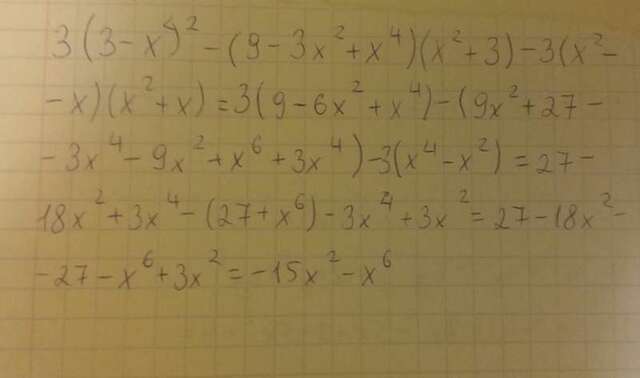 3(3-x⁴)²-(9-3x²+x⁴)(x²+3)-3(x²-
-x)(x²+x)=3(9-6x²+x⁴)-(9x²+27-
-3x⁴-9x²+x⁶+3x⁴)-3(x⁴-x²)=27-
18x²+3x⁴-(27+x⁶)-3x⁴+3x²=27-18x²-
-27-x⁶+3x²=-15x²-x⁶